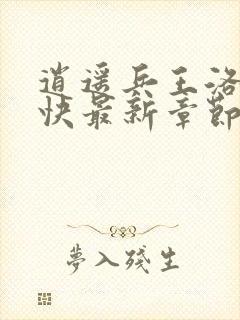 逍遥兵王洛
快最新章節
夢入殘生